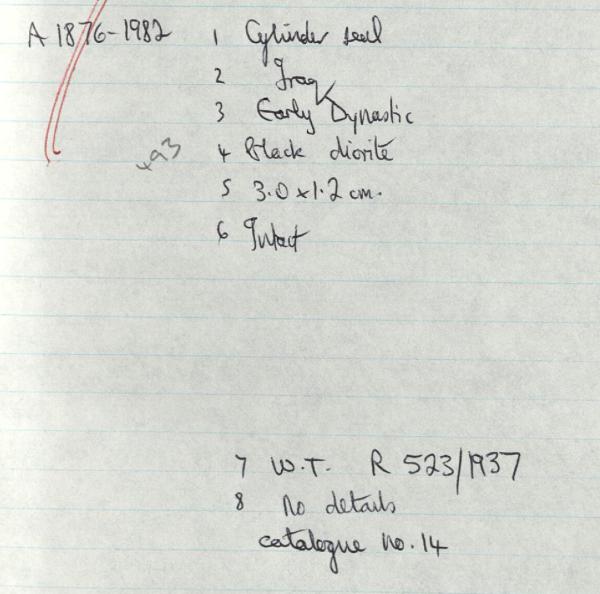 A 1876-1982 1 Cylinder seal
2 Iraq
3 Early Dynastic
4 Black diorite
5 3.0 x 1.2 cm.
6 Intact
7 W.T. R 523/1937
8 No details
catalogue no. 14